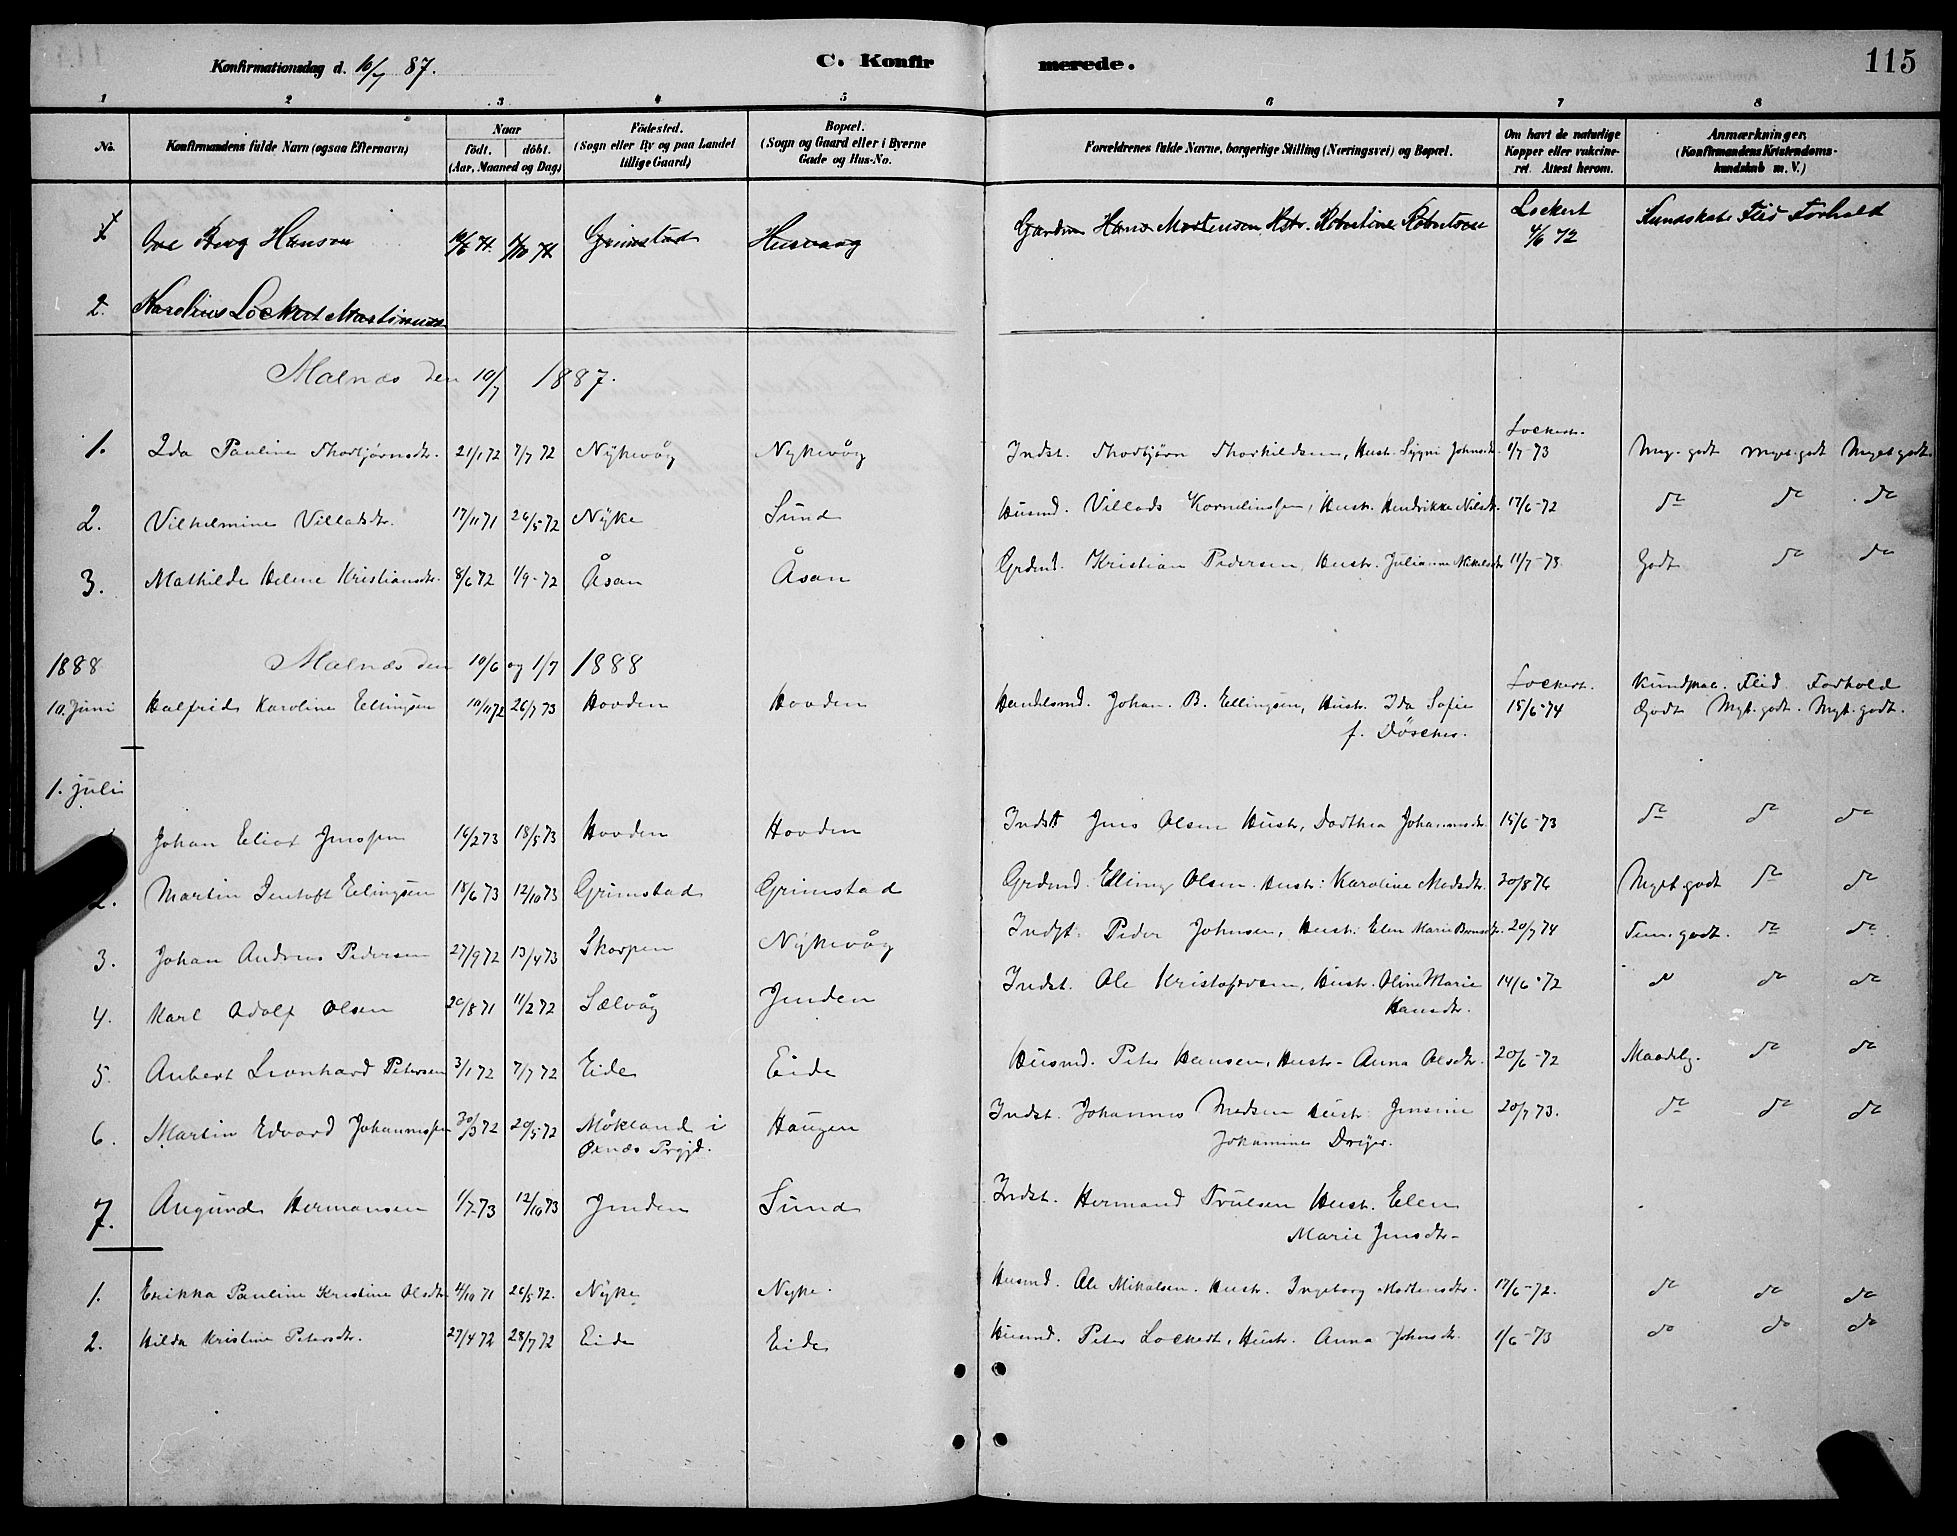 Konfirmationsdag d. 10/7 87.
C. Konfirmerede.
115
1 2 3 4 5 6 7 8
No.
Konfirmandens fulde Navn (ogsaa Efternavn)
Naar
født. døbt.
(Aar, Maaned og Dag)
Fødested.
(Sogn eller By og paa Landet
tillige Gaard)
Bopæl.
(Sogn og Gaard eller i Byerne
Gade og Hus-No.
Forældrenes fulde Navne, borgerlige Stilling (Næringsvei) og Bopæl.
Om havt de naturlige
Kopper eller vakcine-
ret. Attest herom.
Anmærkninger.
(Konfirmandens Kristendoms-
kundskab m. V.)
1. Ove Berg Hansen Grimstad Husvaag Gardm Hans Mortensen Lockert 4/6 72 Kundskab Flid Forhold
2. Karolius Lockert Martinusen
Malnæs den 10/7 1887.
1. Ida Pauline Thorbjørnsdtr. 21/1 72 7/7 72 Nykevåg Nykevåg Indst. Thorbjørn Thorkildsen, Hustr. Sygni Johnsdtr. Lockert. 1/7-73 Meg. godt Meget godt Meget godt
2. Vilhelmine Villadsdtr. 17/11 71 26/5 72 Nyke Sund Husmd. Villads Kornelinssen, Hustr. Hendrikke Nilsdtr. 17/6-72 do do do
3. Mathilde Helene Kristiansdtr. 8/6 72 1/9-72 Åsan Åsan Grdmd. Kristian Pedersen, Hustr. Julianne Nikolsdtr 11/7-73 Godt do do
1888 Malnæs den 10/6 og 1/7 1888
10. Juni Halfrid Karoline Ellingsen 10/11 72 26/7 73 Hovden Hovden Handelsmd. Johan. B. Ellingsen, Hustr. Ida Sofie Lockert. 15/6-74 Kundskab. Flid. Forhold
f. Døscher. Godt Mgt. godt. Mgt. godt.
1. juli
Johan Eliot Jenssen 16/2 73 18/5 73 Hovden Hovden Indst Jens Olsen Hustr, Dorthea Johannesdtr. 15/6-73 do do do
2. Martin Jentoft Ellingsen 18/6 73 12/10 73 Grimstad Grimstad Grdmd. Elling Olsen. Hustr: Karoline Madsdtr. 30/8 76 Myet godt do do
3. Johan Andreas Pedersen 27/9 72 13/4 73 Skorpen Nykevåg Indst. Peder Johnsen, Hustr: Elen Marie 20/7 74 Tem. godt. do do
4. Karl Adolf Olsen 20/8 71 11/2 72 Sælvåg Jenden Indst. Ole Kristofersen, Hustr. Oline Marie 14/6-72 do do do
Hansdtr.
5. Anbert Leonhard Petersen 3/1 72 7/7 72 Eide Eide Husmd. Peter Hansen, Hustr- Anna Olsdtr. 20/6-72 Maadelg. do do
6. Martin Edvard Johannessen 30/3 72 20/5 72 Møkland i Haugen Indst. Johannes Madsen Hustr. Jensine 20/7 73. do do do
Øxnæs Prgjd. Johannine Dreyer.
7. Angund Hermansen 1/7-73 12/10 73 Jenden Sund Indst. Hermand Trulsen Hustr. Elen
Marie Jensdtr-
1. Erikka Pauline Kristine Olsdtr 4/10 71 26/5 72. Nyke Nyke. Husmd. Ole Mikalsen. Hustr. Ingeborg Mortensdtr. 17/6-72. do do do
2. Hilda Kristine Petersdtr. 27/4 72 28/7 72 Eide Eide Husmd. Peter Lockert, Hustr. Anna Johnsdtr. 1/6-73 do do do